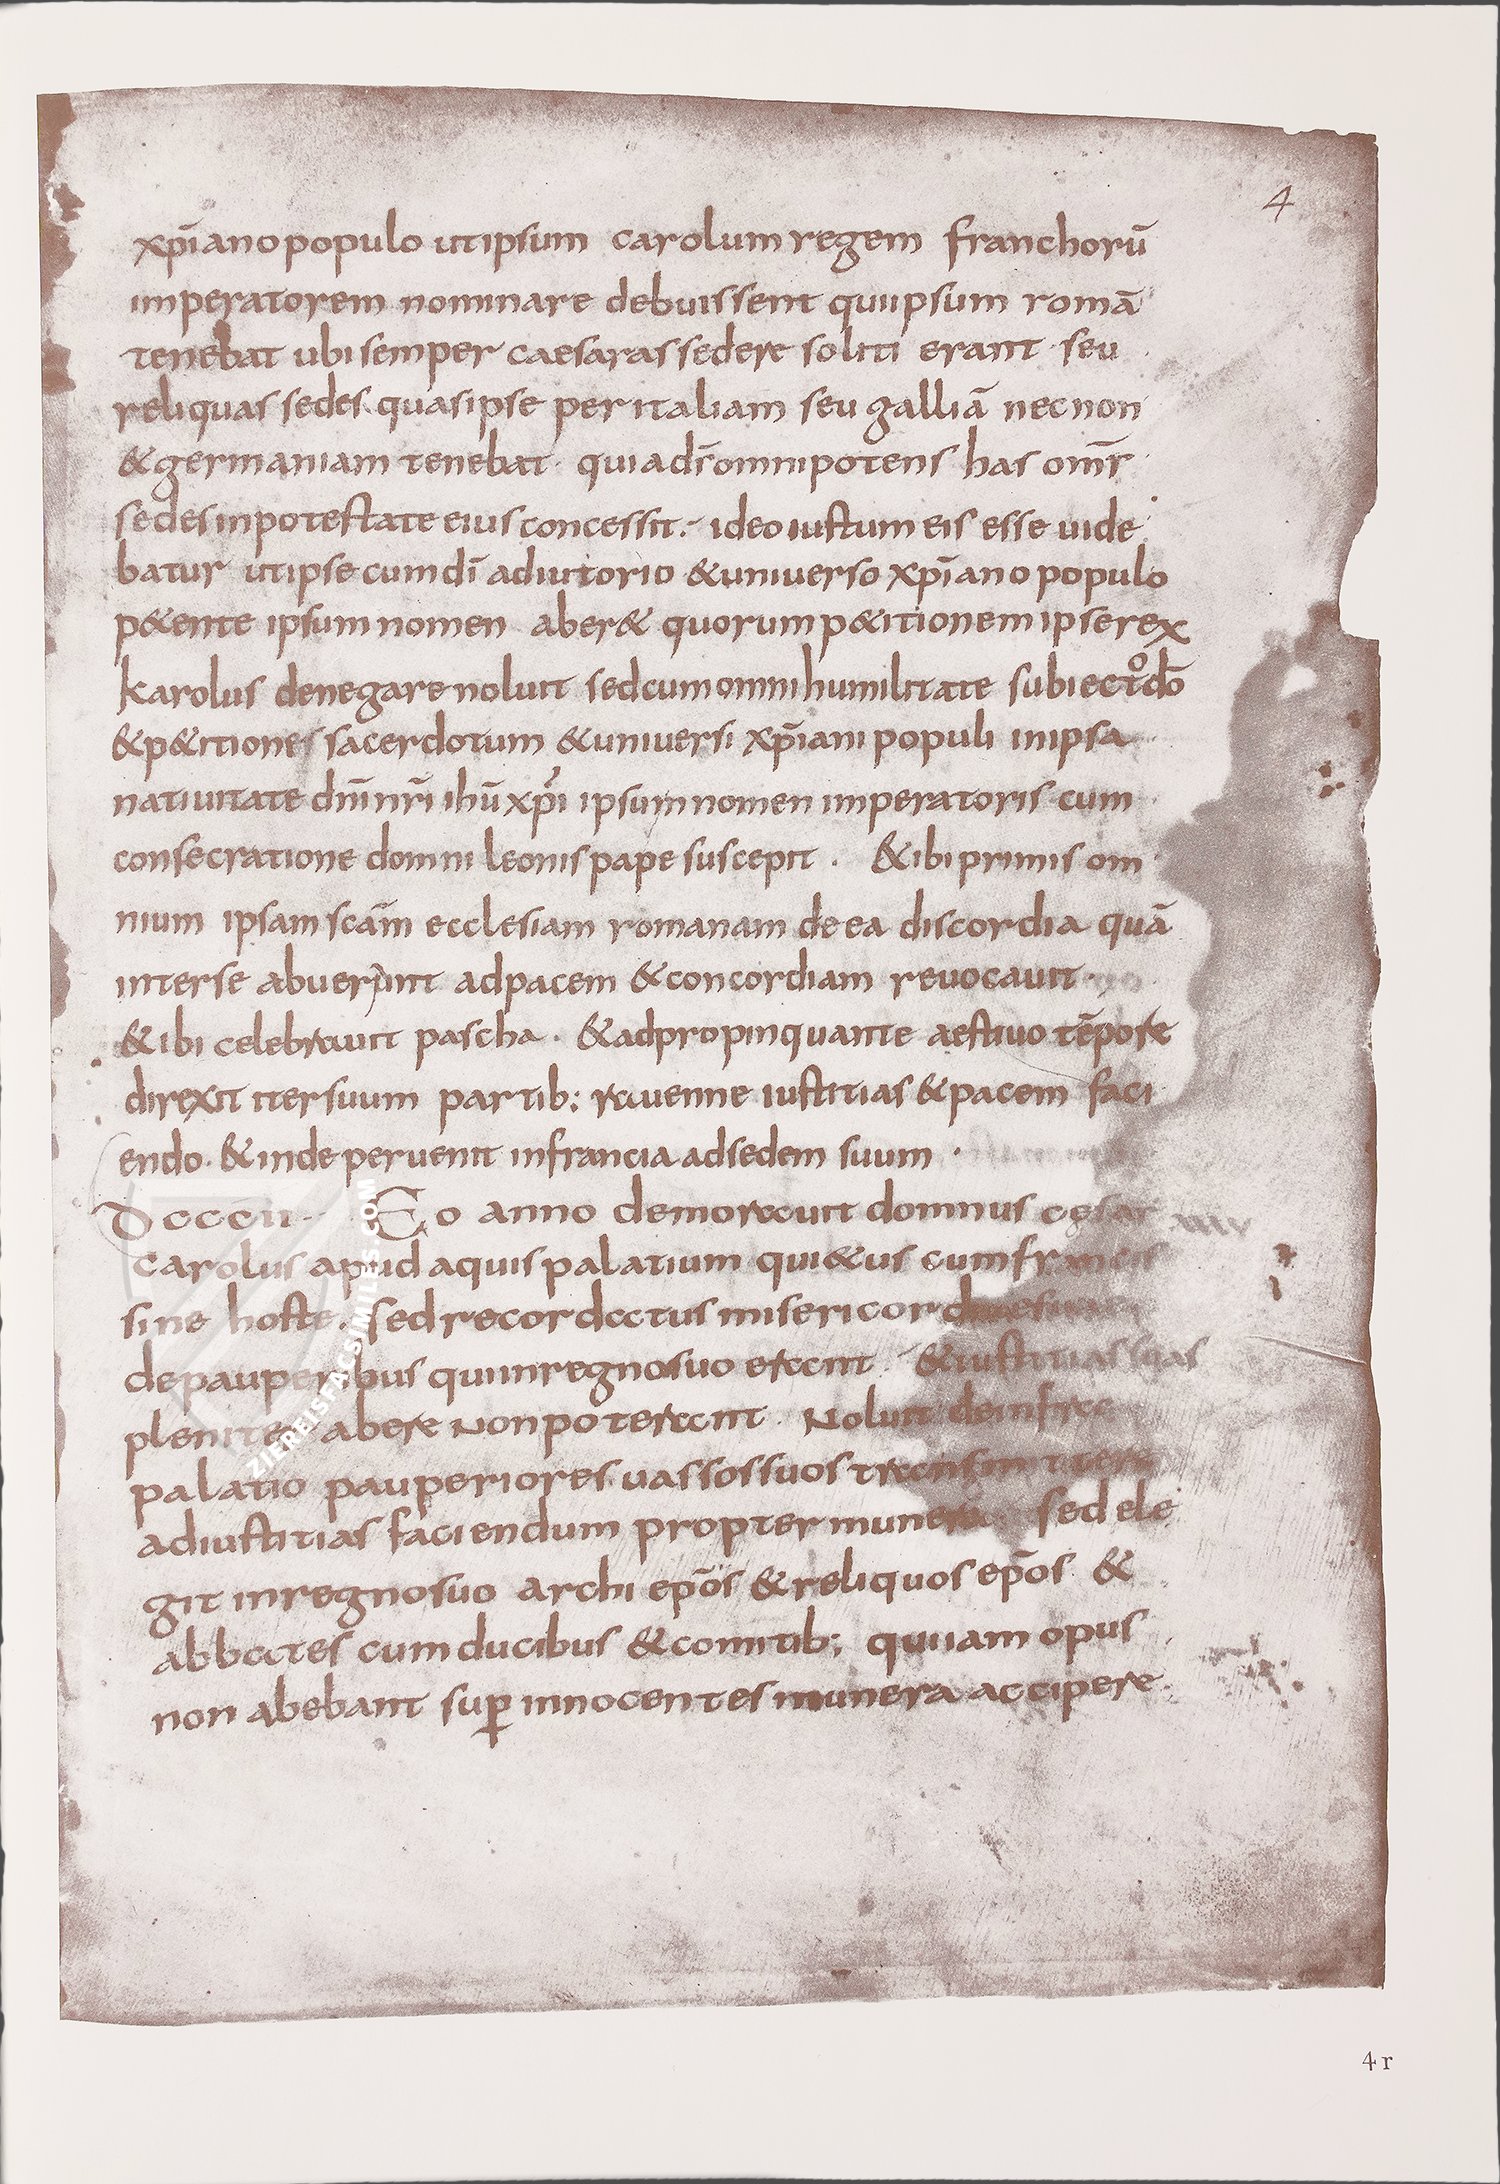 4
xp̄iano populo ut ipsum carolum regem franchorū
imperatorem nominare debuissent qui ipsum romā
tenebat ubi semper caesaras sedere soliti erant seu
reliquas sedes quas ipse per italiam seu galliā nec non
& germaniam tenebat · quia d̄s omnipotens has om̄s
sedes in potestate eius concessit · ideo iustum eis esse uide
batur ut ipse cum dī adiutorio & uniuerso xp̄iano populo
p&ente ipsum nomen aber& quorum p&itionem ipse rex
karolus denegare noluit sed cum omni humilitate subiectus dō
& p&itione sacerdotum & uniuersi xp̄iani populi in ipsa
natiuitate dn̄i nr̄i ihū xp̄i ipsum nomen imperatoris cum
consecratione domni leonis pape suscepit · & ibi primis om
nium ipsam scām ecclesiam romanam de ea discordia quā
inter se abuerunt ad pacem & concordiam reuocauit ·
& ibi celebrauit pascha · & adpropinquante aestiuo tēpore
direxit iter suum partib; rauenne iustitias & pacem faci
endo · & inde peruenit in francia ad sedem suum ·
DCCCII · Eo anno demorauit domnus cęsar
carolus apud aquis palatium qui&us cum francis
sine hoste · sed recordatus misericordiae suae
de pauperibus qui in regno suo erant · & iustitias suas
pleniter abere non poterant · Noluit de infra
palatio pauperiores uassos suos transmittere
ad iustitias faciendum propter munera · sed ele
git in regno suo archi ep̄os & reliquos ep̄os &
abbates cum ducibus & comitib; qui iam opus
non abebant sup̱ innocentes munera accipere ·
ZIEREISFACSIMILES.COM
4r